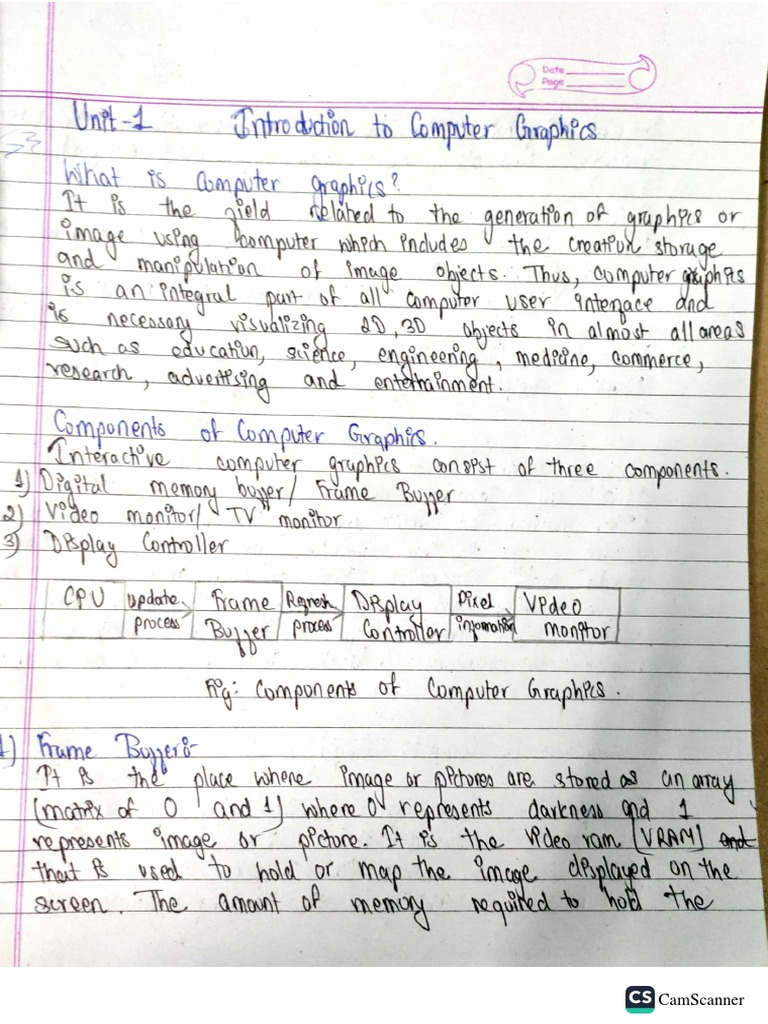 Date
Page
Unit-1 Introduction to Computer Graphics
What is computer graphics?
It is the field related to the generation of graphics or
image using computer which includes the creation storage
and manipulation of image objects. Thus, computer graphics
is an integral part of all computer user interface and
is necessary visualizing 2D, 3D objects in almost all areas
such as education, science, engineering, medicine, commerce,
research, advertising and entertainment.
Components of Computer Graphics.
Interactive computer graphics consist of three components.
1) Digital memory buffer/ Frame Buffer
2) Video monitor/ TV monitor
3) Display Controller
CPU update process Frame Buffer Refresh process Display Controller Pixel information Video monitor
Fig: Components of Computer Graphics.
1) Frame Buffer:-
It is the place where image or pictures are stored as an array
(matrix of 0 and 1) where 0 represents darkness and 1
represents image or picture. It is the video ram (VRAM) and
that is used to hold or map the image displayed on the
screen. The amount of memory required to hold the
CS CamScanner